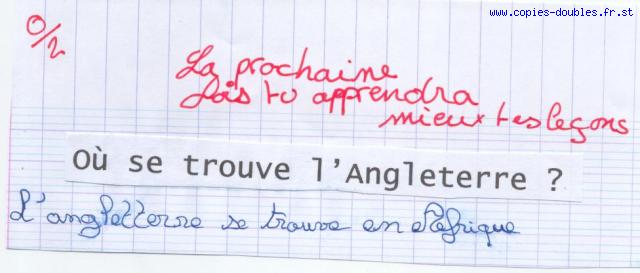 www.copies-doubles.fr.st
0/2
La prochaine
fois tu apprendra
mieux tes leçons
Où se trouve l'Angleterre ?
L'angletterre se trouve en Afrique